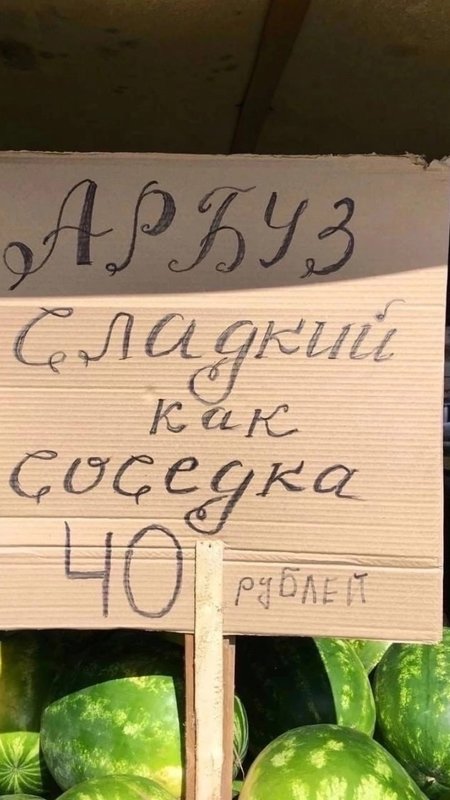 АРБУЗ
Сладкий
как
соседка
40 рублей